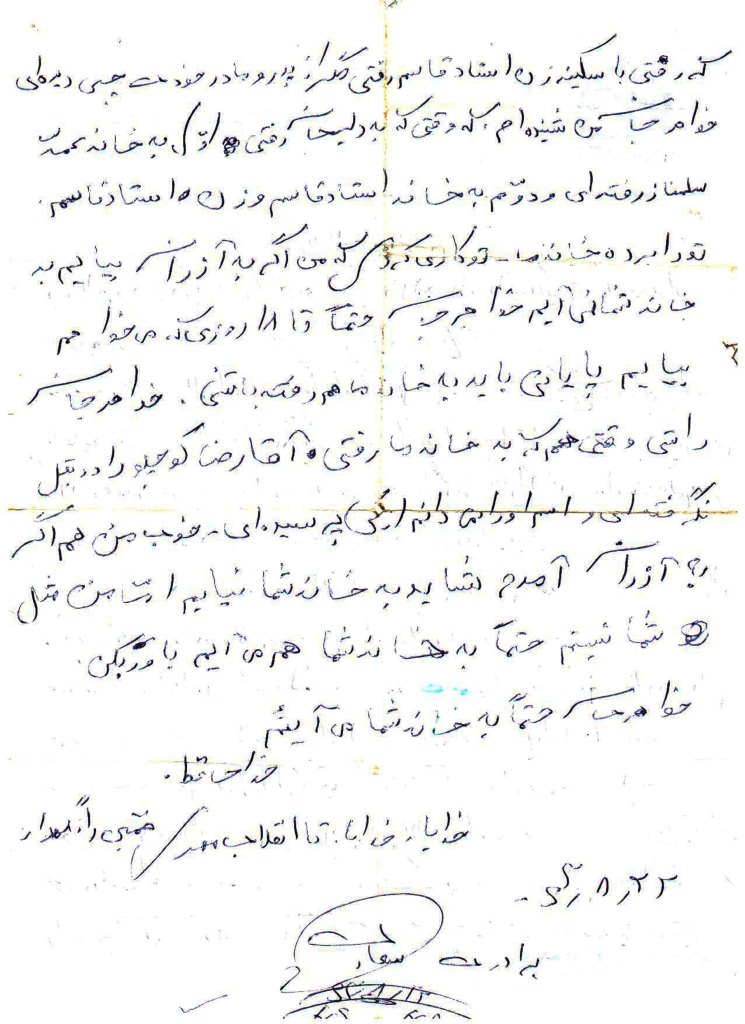 که رفتی با سکینه زن استاد قاسم رفتی مگر از پدر و مادر خودت چیزی دیده‌ای
خواهر جان من شنیده‌ام، که وقتی که به دلیجان رفتی اوّل به خانه محمد
سلمناز رفته‌ای و دوّم به خانه استاد قاسم و زن استاد قاسم.
تو را برده خانه ما – تو کاری کردی که من اگر به آزران بیایم به
خانه شما نمی‌آیم خواهر جان حتماً تا ۱۸ روزی که می‌خواهم
بیایم پایانی باید به خانه ما هم رفته باشی. خواهر جان
راستی وقتی هم که به خانه ما رفتی آقا رضا کوچلو را در بقل
نگرفته‌ای و اسم او را می‌دانم از کی پرسیده‌ای. خوب من هم اگر
به آزران آمدم شاید به خانه شما نیایم امّا من مثل
شما نیستم حتماً به خانه شما هم می‌آیم باور بکن.
خواهر جان حتماً به خانه شما می‌آیم
خدا حافظ.
خدایا، خدایا، تا انقلاب مهدی خمینی را نگهدار
۲۲ر۸ر
برادرت